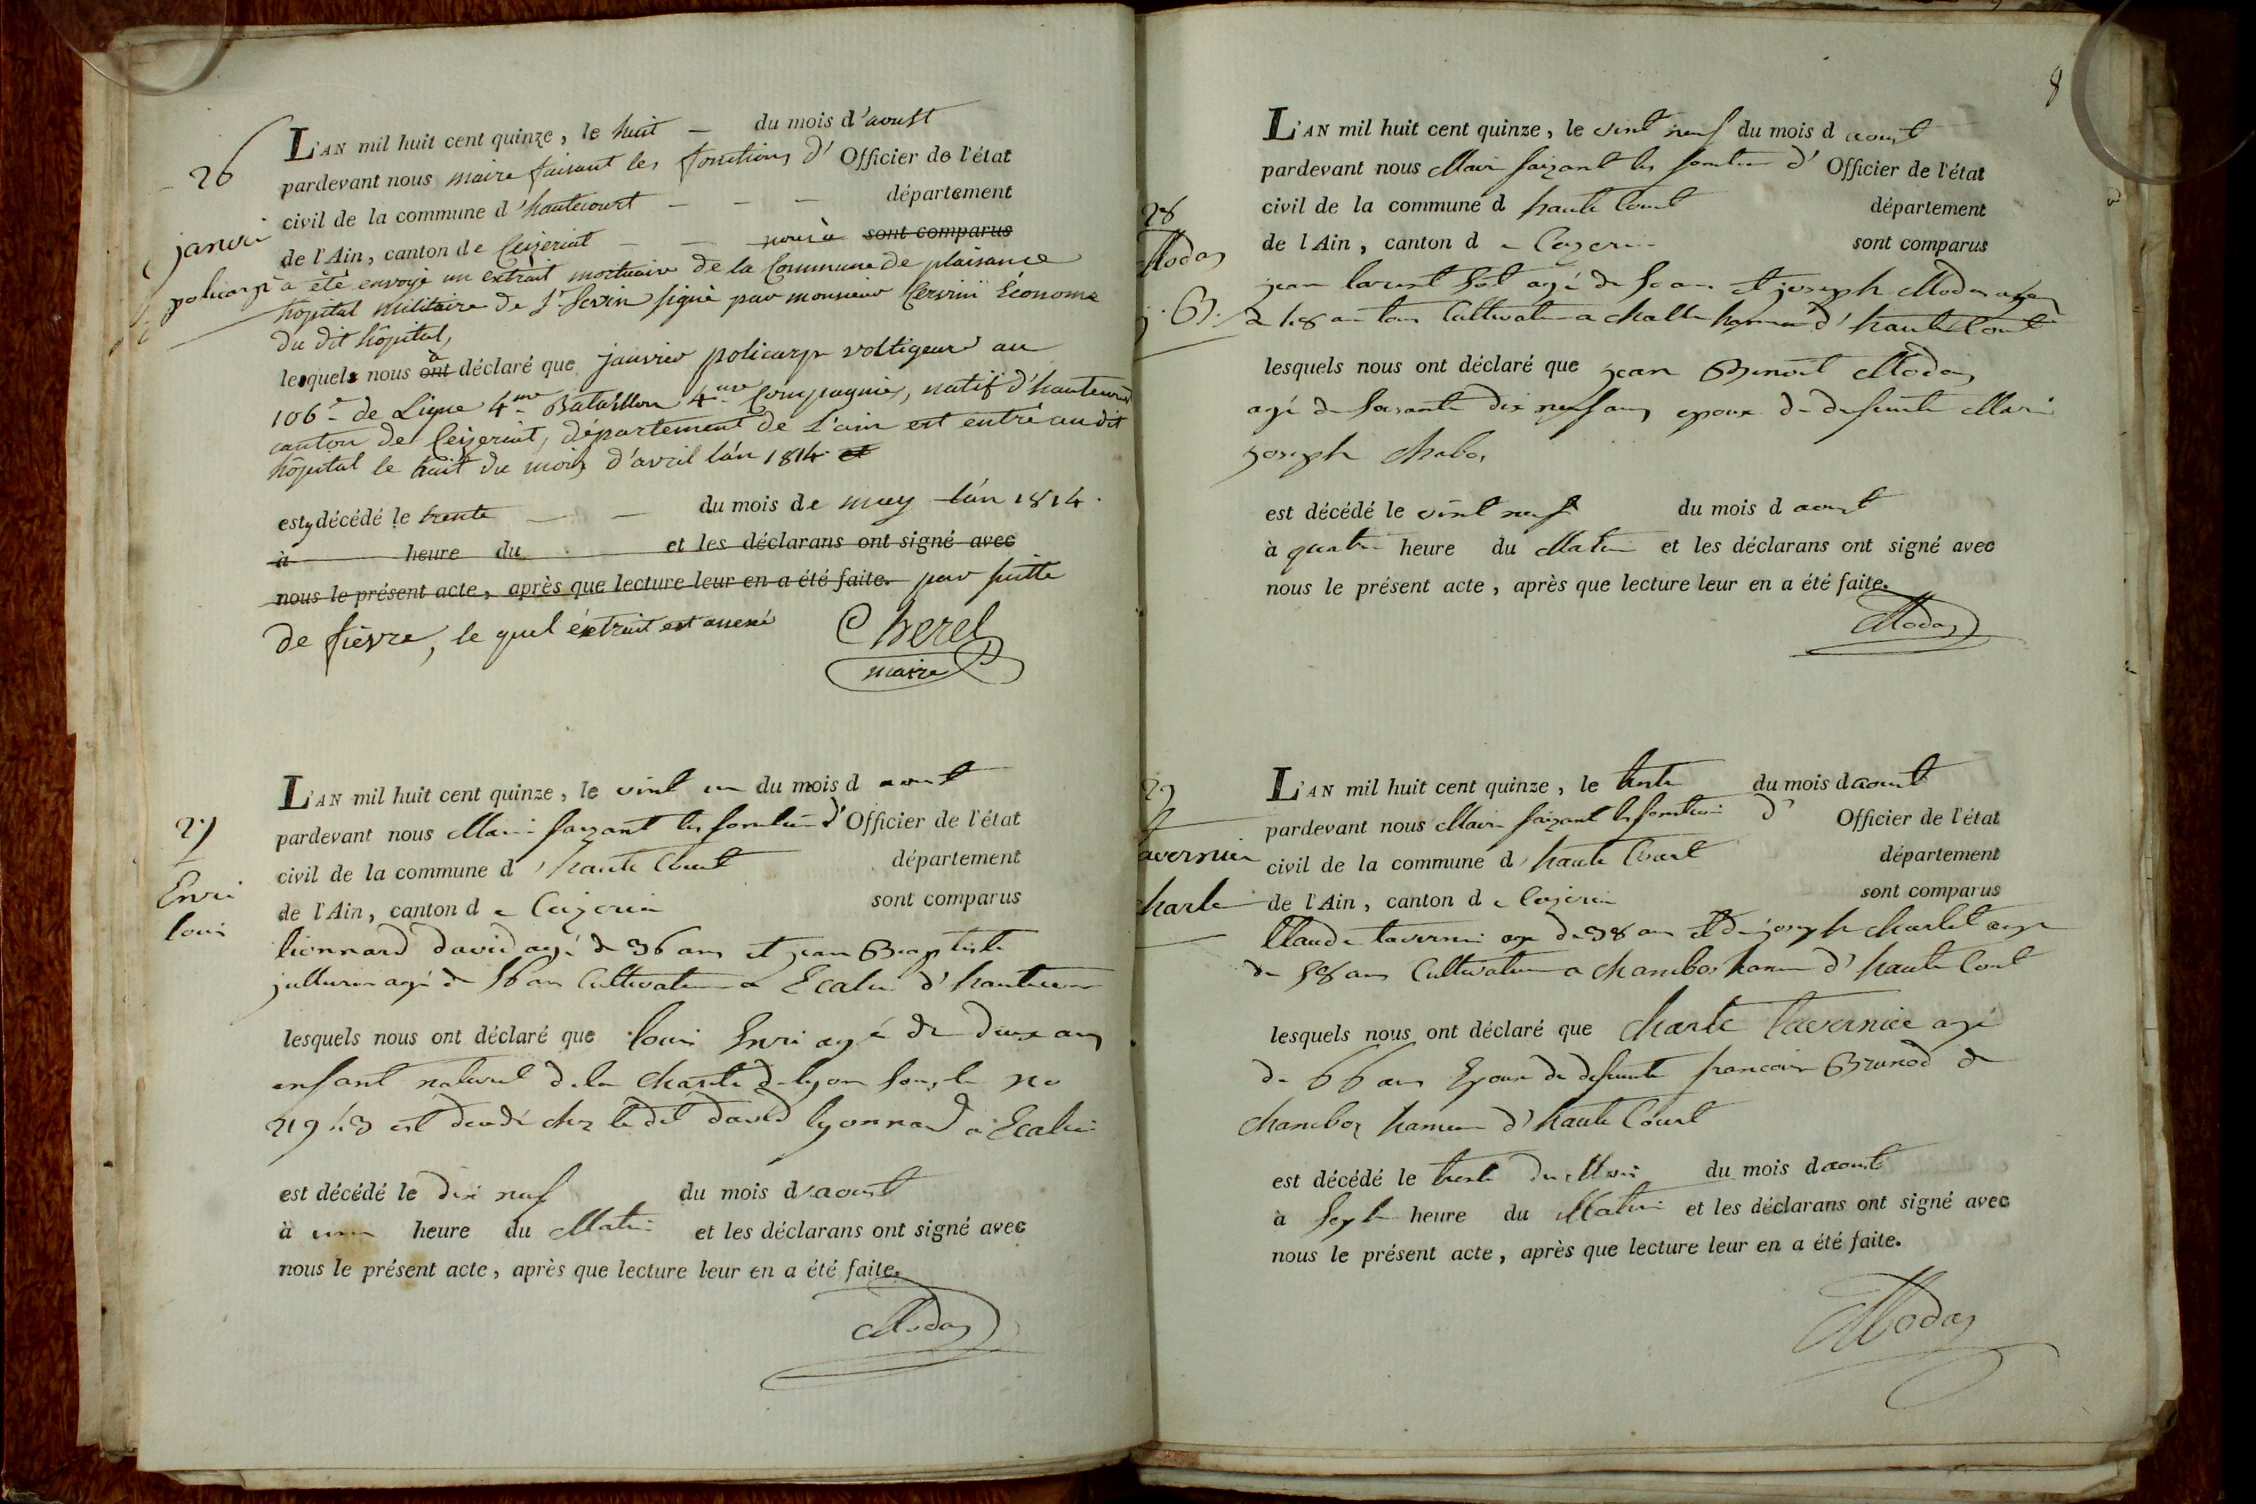 26
janvie
policarpe
L'AN mil huit cent quinze, le huit — du mois d'aoust
pardevant nous maire faisant les fonctions d' Officier de l'état
civil de la commune d'hautecourt — — — département
de l'Ain, canton de Ceÿzeriat — — nous à sont comparus
à été envoyé un extrait mortuaire de la Commune de plaisance
hôpital militaire de St Sevin signé par monsieur Cervini Économe
du dit hôpital,
lesquels nous ont à déclaré que janvier policarpe voltigeur au
106e de Ligne 4me Bataillon 4me Compagnie, natif d'hautecourt
canton de Ceÿzeriat, département de L'ain est entré au dit
hôpital le huit du mois d'avril l'an 1814 et
est y décédé le trente — — du mois de may l'an 1814.
à heure du et les déclarans ont signé avec
nous le présent acte, après que lecture leur en a été faite. par suitte
de fièvre, le quel éxtrait est annexé
Cherel
maire
27
Envri
loui
L'AN mil huit cent quinze, le vint un du mois d aout
pardevant nous Maire faizant les fonction d' Officier de l'état
civil de la commune d'haute Court département
de l'Ain, canton d e Ceizeria sont comparus
lionnard david agé de 36 ans et jean Baptiste
jullieron agé de 56 ans Cultivateur a Ecalie d'hautecour
lesquels nous ont déclaré que loui Envri agé de deux ans
enfant naturel de la Charité de lyon sous le no
21943 est décédé chez le dit david lyonnard a Ecalie
est décédé le dix neuf du mois d aoust
à une heure du Matin et les déclarans ont signé avec
nous le présent acte, après que lecture leur en a été faite.
Modas
8
28
Modas
j. B.
L'AN mil huit cent quinze, le vint neuf du mois d aoust
pardevant nous Maire faizant les fonction d' Officier de l'état
civil de la commune d haute Court département
de l'Ain, canton d e Cezeria sont comparus
jean laurent agé de ans et joseph Modas agé
de 48 ans tous Cultivateur a Challe hameau d'haute Court
lesquels nous ont déclaré que jean Benoit Modas
agé de soisante dix neuf ans epoux de defeunte Marie
joseph Chabo
est décédé le vint neuf du mois d aoust
à quatre heure du Matin et les déclarans ont signé avec
nous le présent acte, après que lecture leur en a été faite.
Modas
29
tavernier
Charle
L'AN mil huit cent quinze, le trente du mois d aoust
pardevant nous Maire faizant les fonction d' Officier de l'état
civil de la commune d'haute Court département
de l'Ain, canton d e Cezeria sont comparus
Claude tavernie age de 38 ans et de joseph Charlet age
de 58 ans Cultivateur a Chambos hameau d'haute Cout
lesquels nous ont déclaré que Charle tavernier agé
de 66 ans Epoux de defeunte francoise Brunod de
Chambos hameau d'haute Court
est décédé le trente du Mois du mois d aoust
à Septe heure du Matin et les déclarans ont signé avec
nous le présent acte, après que lecture leur en a été faite.
Modas